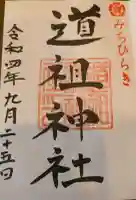 みちひらき
道祖神社
令和四年九月二十五日